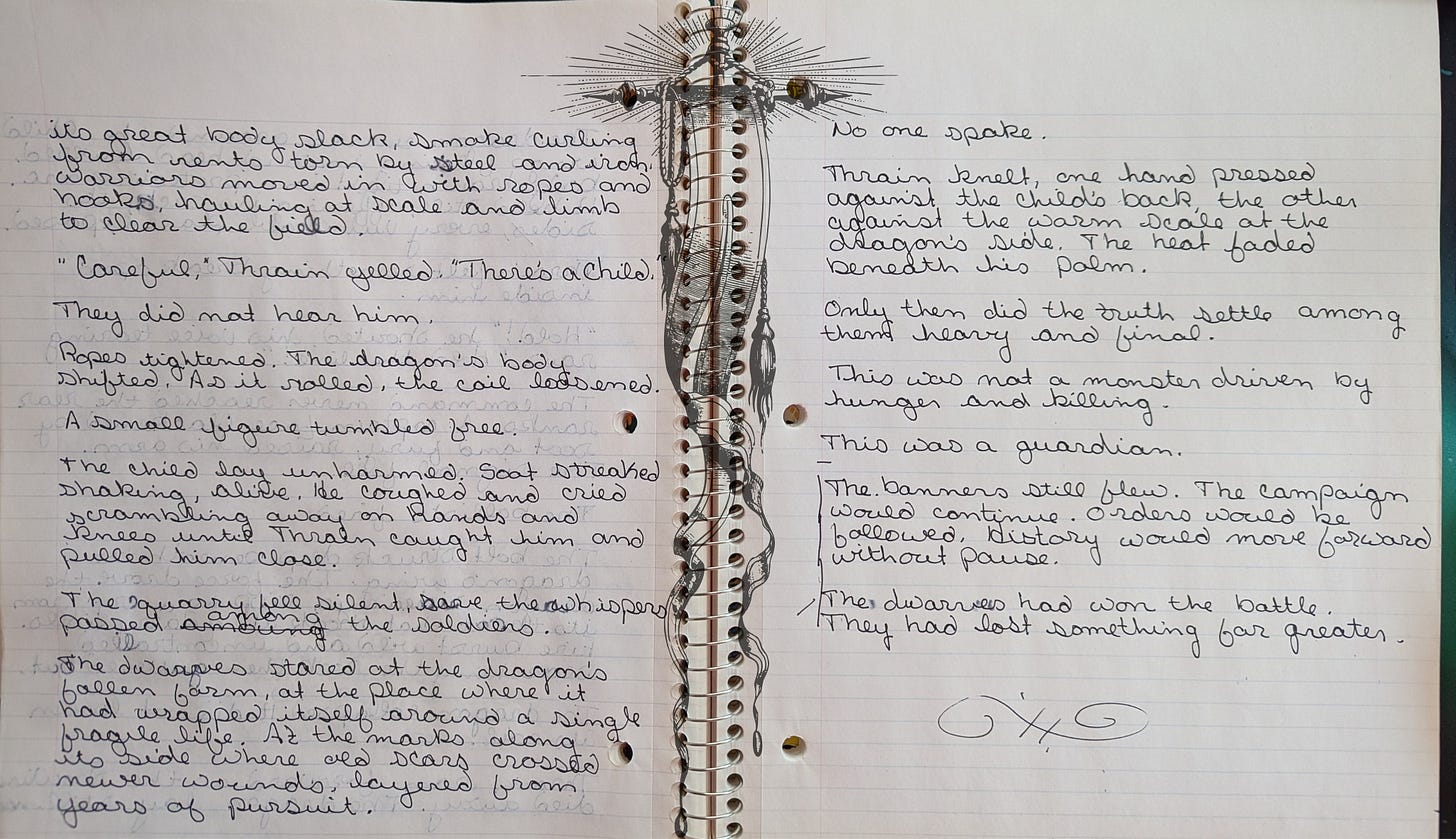 its great body slack, smoke curling
from rents torn by steel and iron.
warriors moved in with ropes and
hooks, hauling at scale and limb
to clear the field.
"Careful," Thrain yelled. "There's a child.
They did not hear him.
Ropes tightened. The dragon's body
shifted. As it rolled, the coil loosened.
A small figure tumbled free.
The child lay unharmed. Soot streaked
shaking, alive. He coughed and cried
scrambling away on hands and
knees until Thrain caught him and
pulled him close.
The quarry fell silent, save the whispers
among
passed amoung the soldiers.
The dwarves stared at the dragon's
fallen form, at the place where it
had wrapped itself around a single
fragile life. At the marks along
its side where old scars crossed
newer wounds, layered from
years of pursuit.
No one spoke.
Thrain knelt, one hand pressed
against the child's back, the other
against the warm scale at the
dragon's side. The heat faded
beneath his palm.
Only then did the truth settle among
them heavy and final.
This was not a monster driven by
hunger and killing.
This was a guardian.
The banners still flew. The campaign
would continue. Orders would be
followed. History would move forward
without pause.
The dwarves had won the battle.
They had lost something far greater.